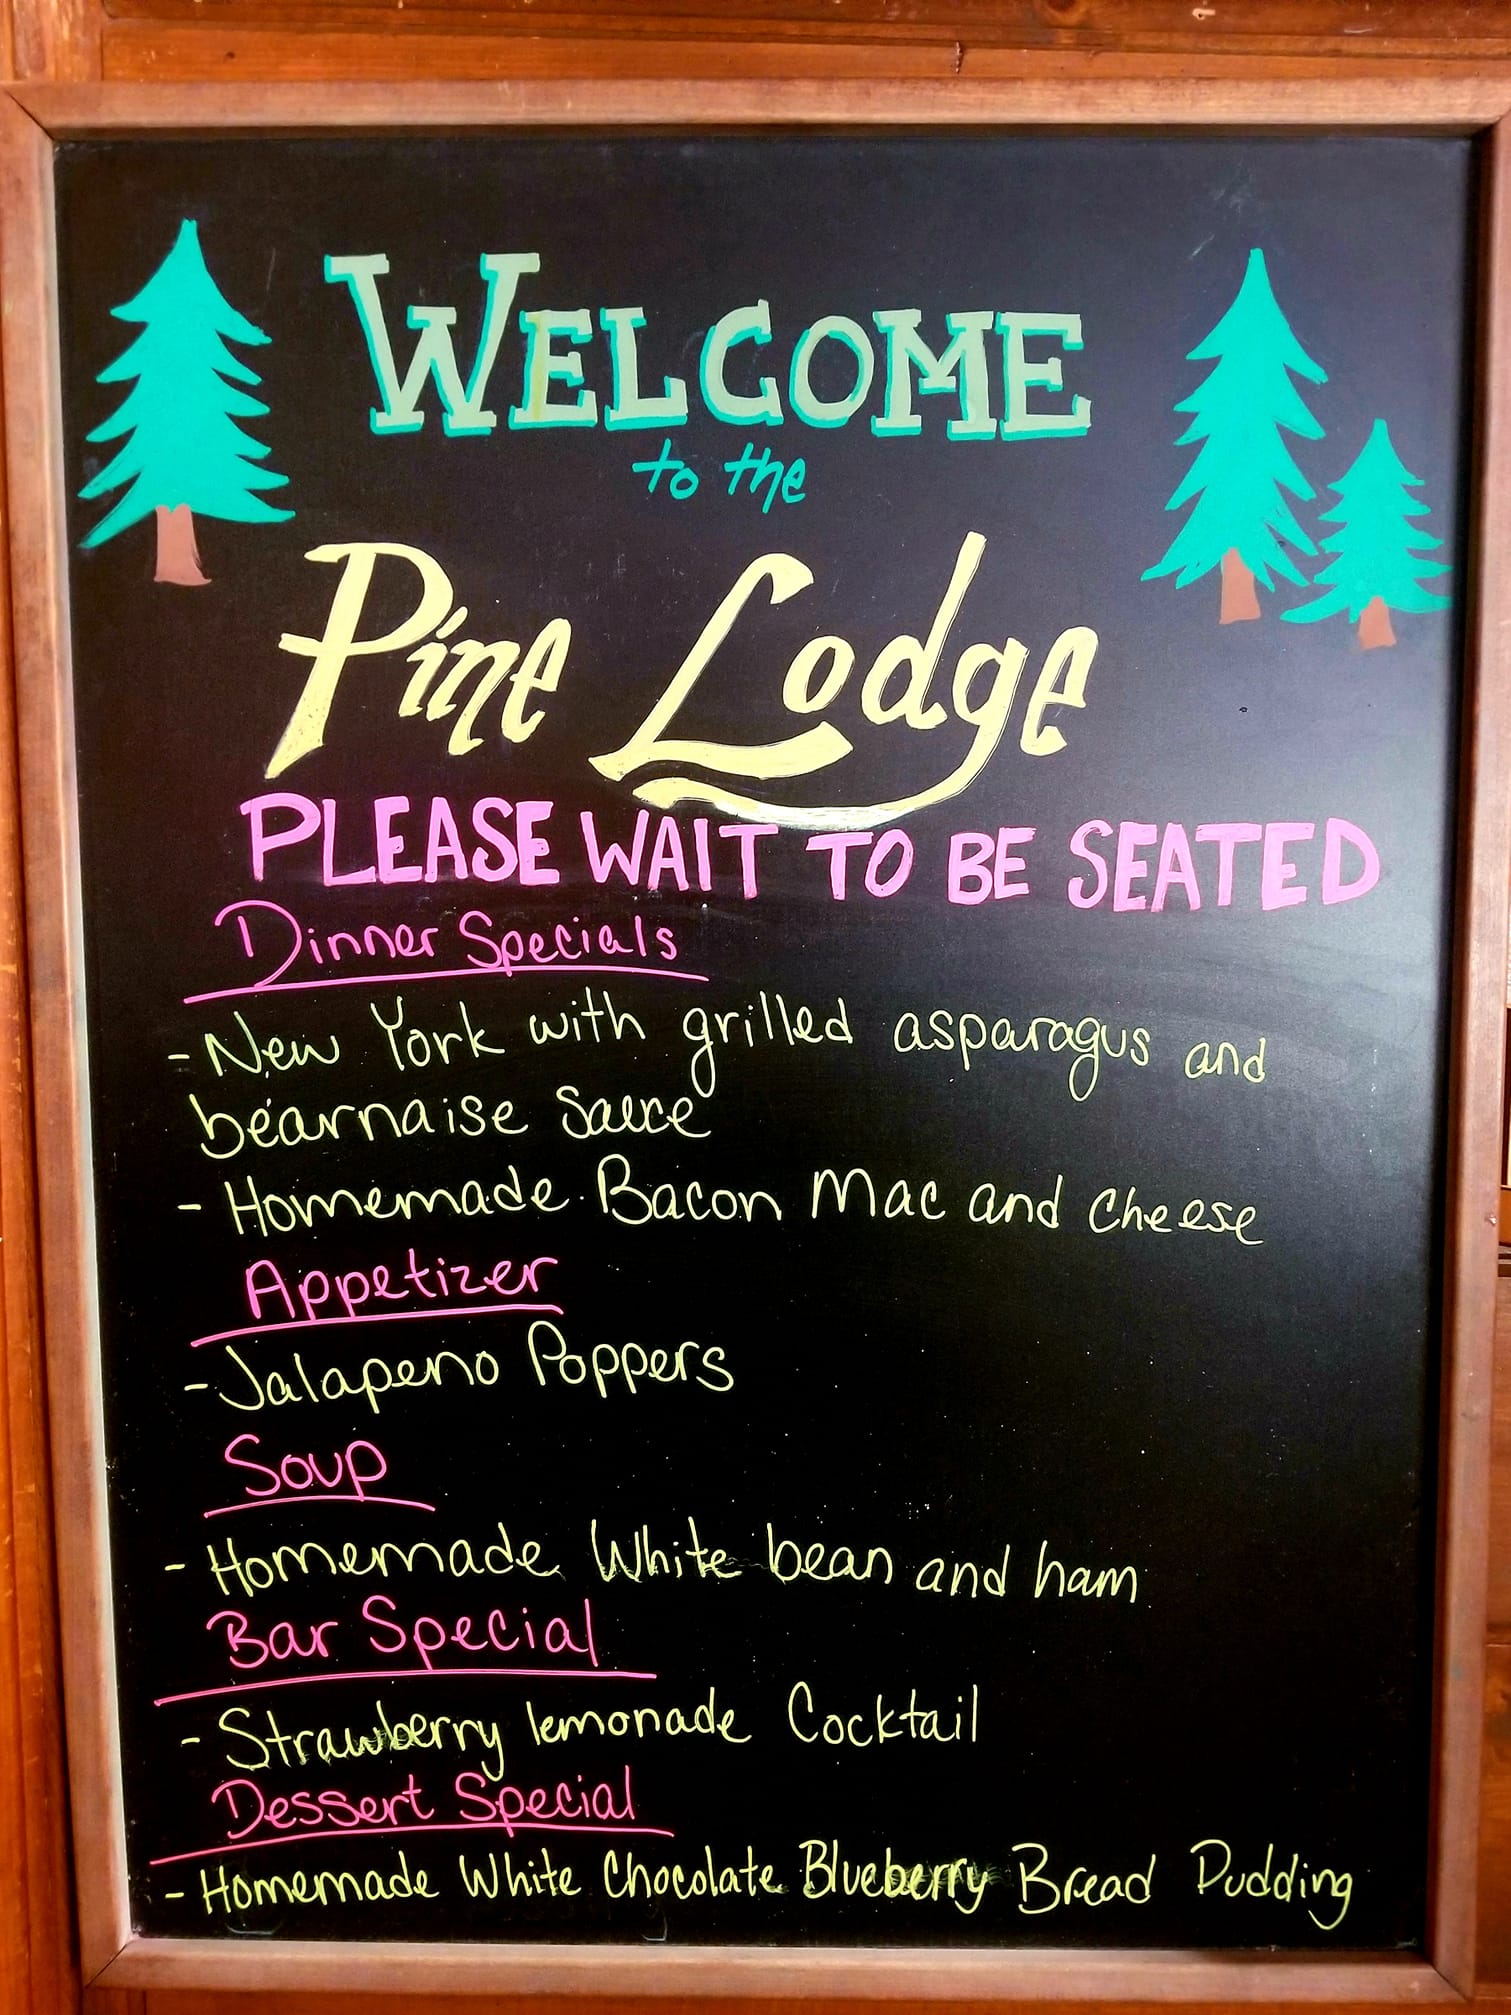 WELCOME
to the
Pine Lodge
PLEASE WAIT TO BE SEATED
Dinner Specials
- New York with grilled asparagus and
béarnaise sauce
- Homemade Bacon Mac and cheese
Appetizer
- Jalapeno Poppers
Soup
- Homemade White bean and ham
Bar Special
- Strawberry lemonade Cocktail
Dessert Special
- Homemade White Chocolate Blueberry Bread Pudding